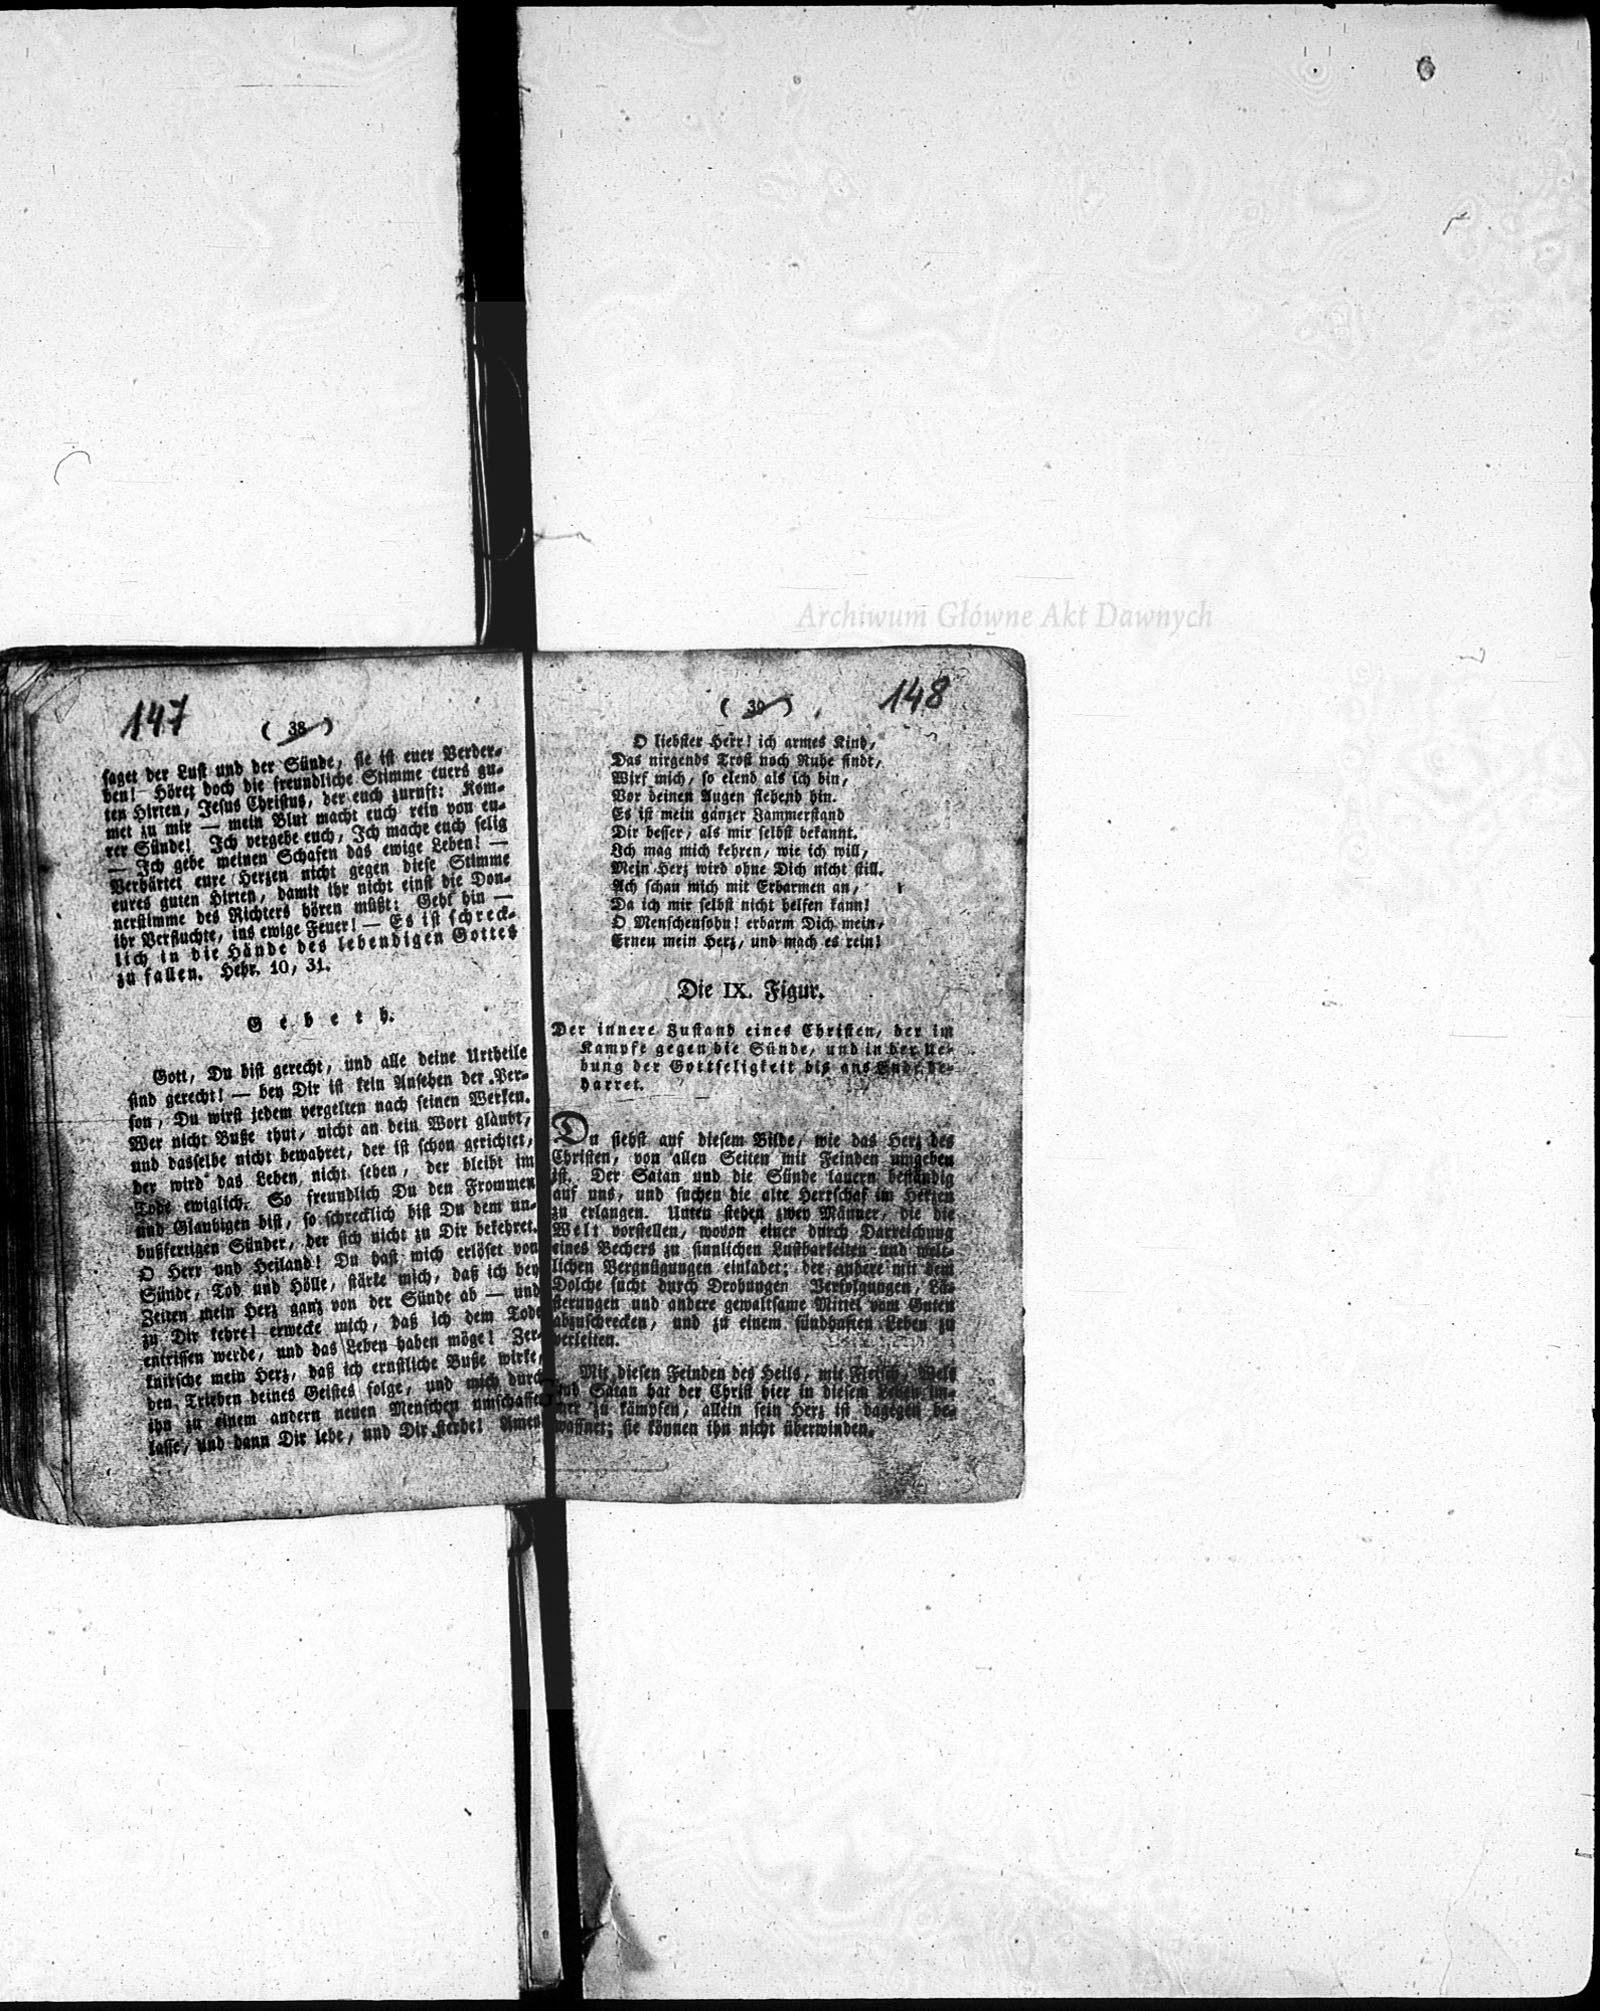 147
( 38 )
saget der Lust und der Sünde, sie ist euer Verder-
ben! Höret doch die freundliche Stimme euers gu-
ten Hirten, Jesus Christus, der euch zuruft: Kom-
met zu mir — mein Blut macht euch rein von eu-
rer Sünde! Ich vergebe euch, Ich mache euch selig
— Ich gebe meinen Schafen das ewige Leben! —
Verhärtet eure Herzen nicht gegen diese Stimme
eures guten Hirten, damit ihr nicht einst die Don-
nerstimme des Richters hören müßt: Geht hin —
ihr Verfluchte, ins ewige Feuer! — Es ist schreck-
lich in die Hände des lebendigen Gottes
zu fallen. Hebr. 10, 31.
Gebeth.
Gott, Du bist gerecht, und alle deine Urtheile
sind gerecht! — bey Dir ist kein Ansehen der Per-
son, Du wirst jedem vergelten nach seinen Werken.
Wer nicht Buße thut, nicht an dein Wort glaubt,
und dasselbe nicht bewahret, der ist schon gerichtet,
der wird das Leben nicht sehen, der bleibt im
Tode ewiglich. So freundlich Du den Frommen
und Glaubigen bist, so schrecklich bist Du dem un-
bußfertigen Sünder, der sich nicht zu Dir bekehret.
O Herr und Heiland! Du hast mich erlöset von
Sünde, Tod und Hölle, stärke mich, daß ich bey
Zeiten mein Herz ganz von der Sünde ab — und
zu Dir kehre! erwecke mich, daß ich dem Tode
entrissen werde, und das Leben haben möge! Zer-
knirsche mein Herz, daß ich ernstliche Buße wirke,
den Trieben deines Geistes folge, und mich durch
ihn zu einem andern neuen Menschen umschaffen
lasse, und dann Dir lebe, und Dir sterbe! Amen
148
( 39 )
O liebster Herr! ich armes Kind,
Das nirgends Trost noch Ruhe findt,
Wirf mich, so elend als ich bin,
Vor deinen Augen flehend hin.
Es ist mein ganzer Jammerstand
Dir besser, als mir selbst bekannt.
Ich mag mich kehren, wie ich will,
Mein Herz wird ohne Dich nicht still.
Ach schau mich mit Erbarmen an,
Da ich mir selbst nicht helfen kann!
O Menschensohn! erbarm Dich mein,
Erneu mein Herz, und mach es rein!
Die IX. Figur.
Der innere Zustand eines Christen, der im
Kampfe gegen die Sünde, und in der Ue-
bung der Gottseligkeit bis ans Ende be-
harret.
Du siehst auf diesem Bilde, wie das Herz des
Christen, von allen Seiten mit Feinden umgeben
ist. Der Satan und die Sünde lauern beständig
auf uns, und suchen die alte Herrschaf im Herzen
zu erlangen. Unten stehen zwey Männer, die die
Welt vorstellen, wovon einer durch Darreichung
eines Bechers zu sinnlichen Lustbarkeiten und welt-
lichen Vergnügungen einladet; der andere mit dem
Dolche sucht durch Drohungen Verfolgungen, Lä-
sterungen und andere gewaltsame Mittel vom Guten
abzuschrecken, und zu einem sündhaften Leben zu
verleiten.
Mit diesen Feinden des Heils, mit Fleisch, Welt
und Satan hat der Christ hier in diesem Leben im-
mer zu kämpfen, allein sein Herz ist dagegen be-
waffnet; sie können ihn nicht überwinden.
Archiwum Główne Akt Dawnych